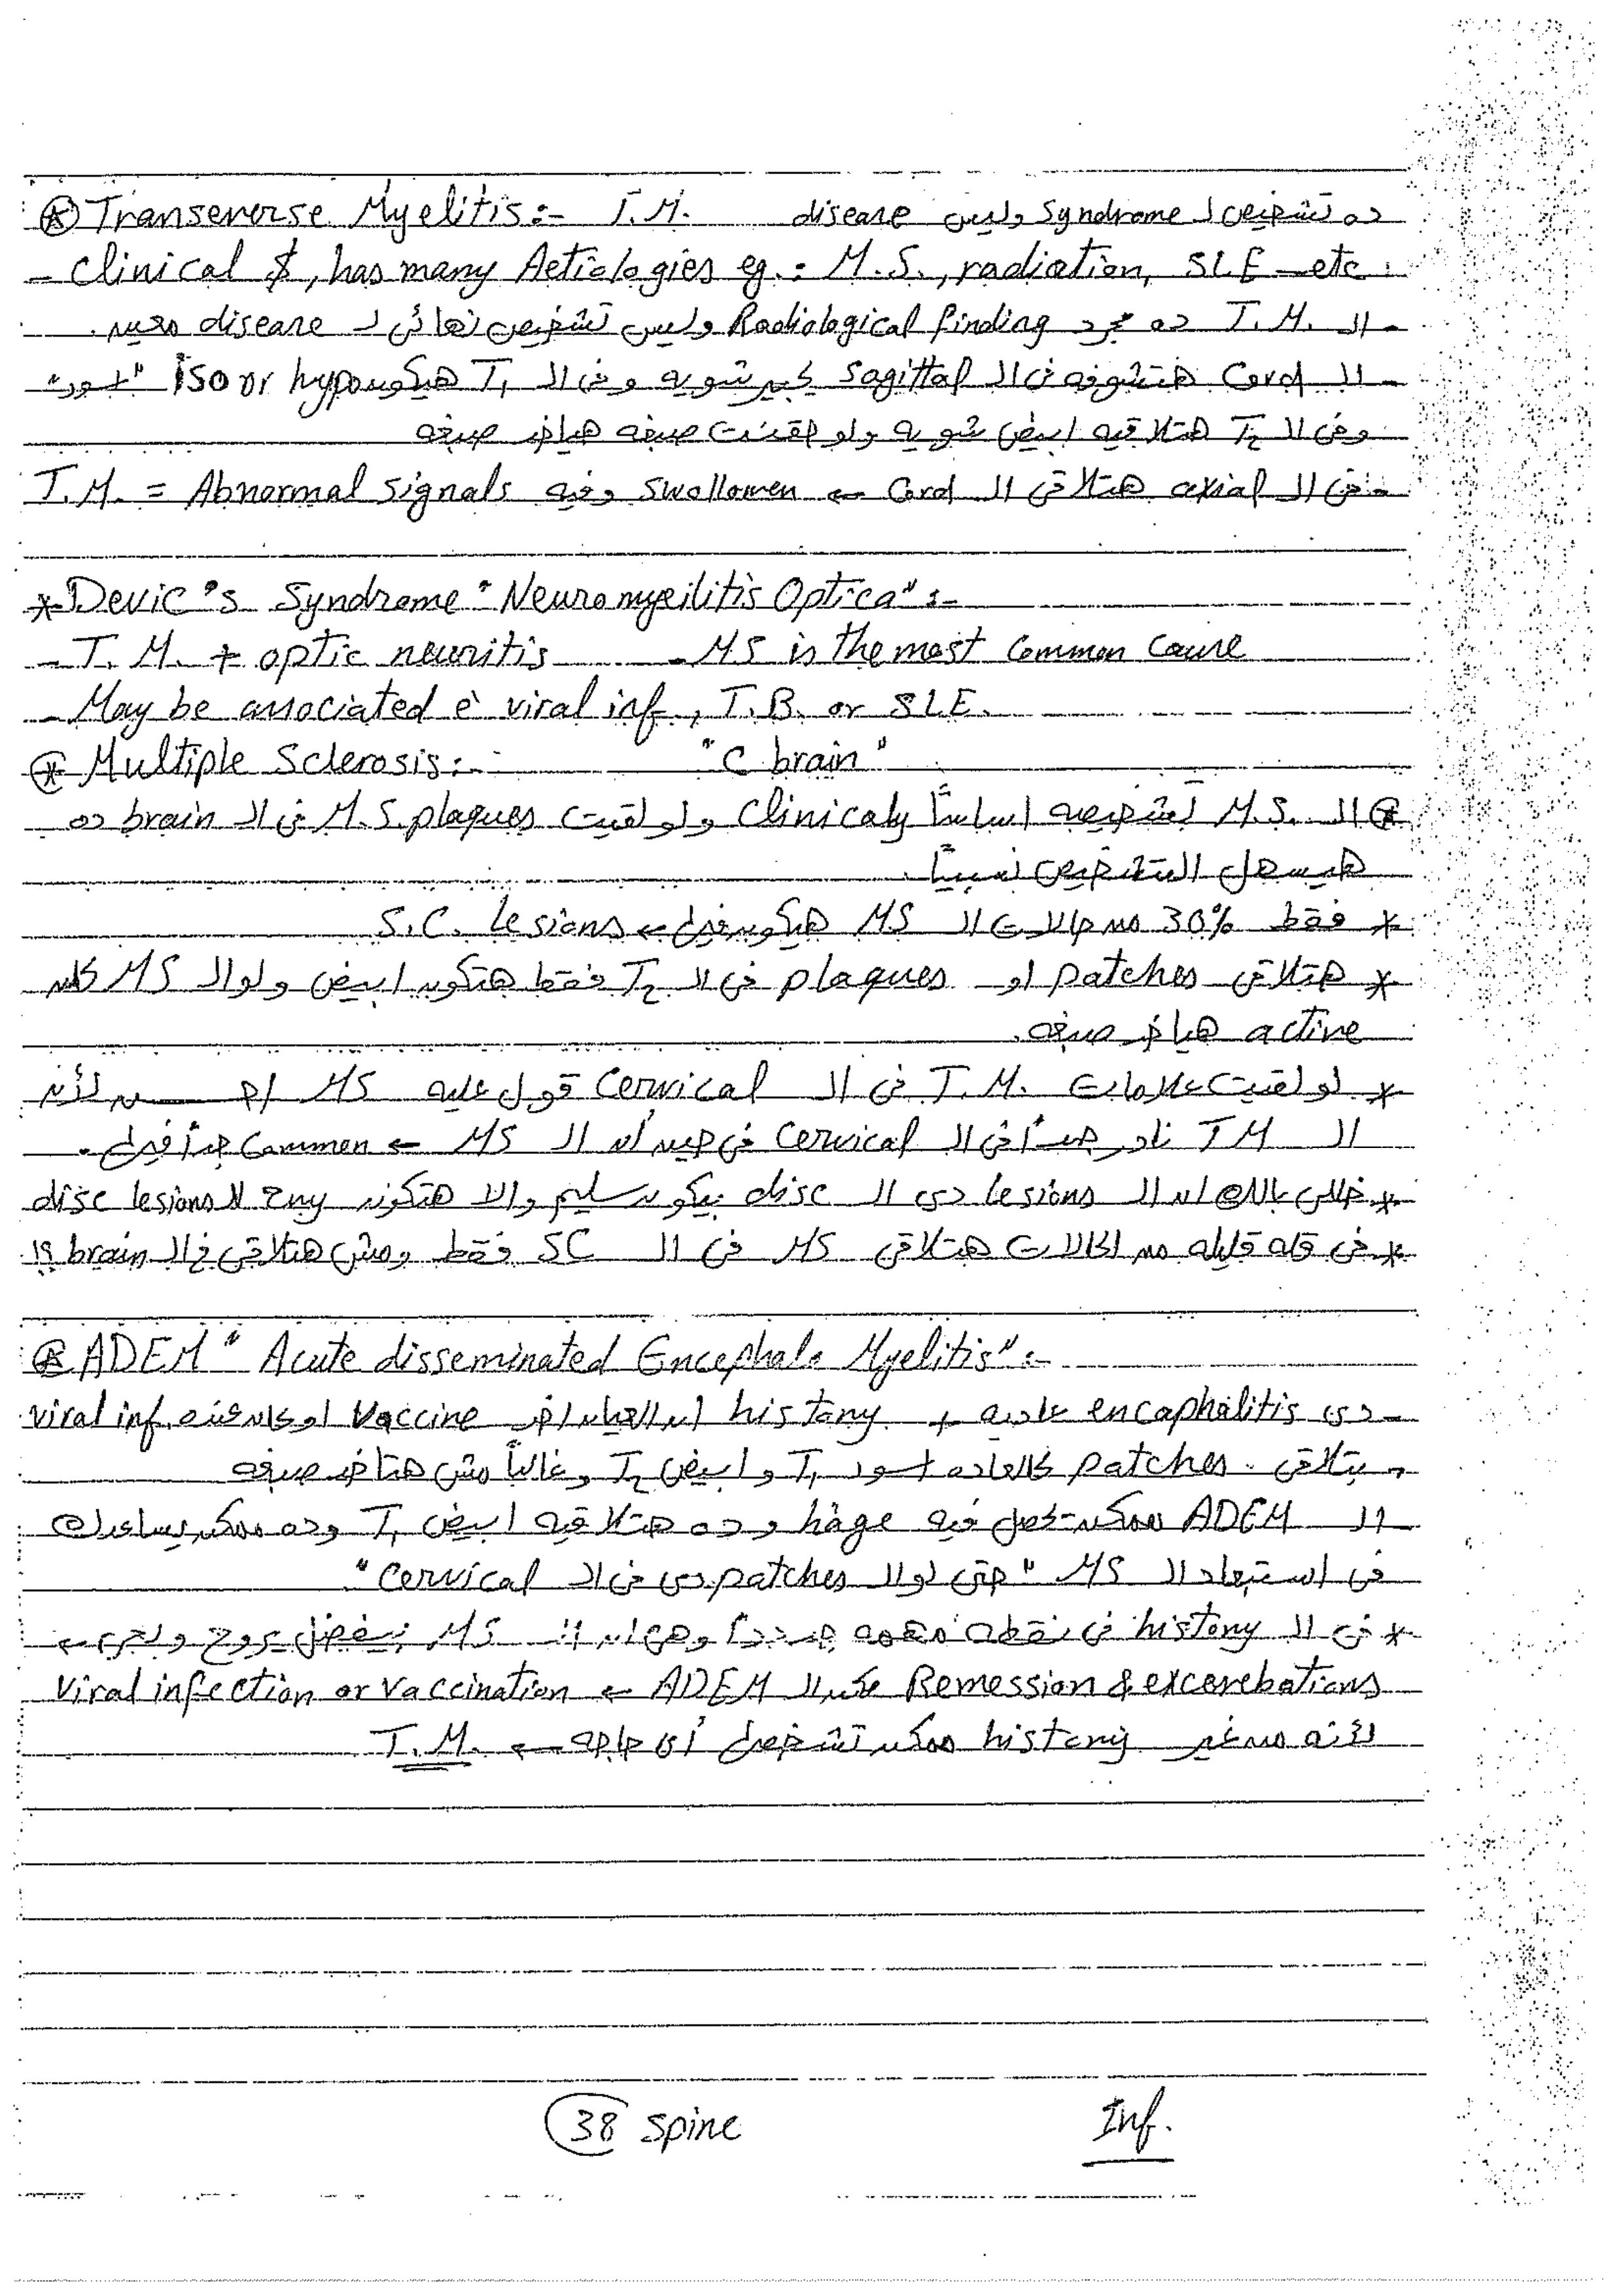 ⊛ Transeverse Myelitis:- T.M. ده تشخيص لـ Syndrome وليس disease
- Clinical $, has many Aetiologies eg.: M.S., radiation, SLE - etc.
- الـ T.M. ده مجرد Radiological finding وليس تشخيص نهائى لـ disease معين.
- الـ Cord هتشوفه فى الـ Sagittal كبير شويه وفى الـ T1 هيكون iso or hypo "اسود"
وفى الـ T2 هتلاقيه ابيض شويه ولو حقنت صبغه هياخد صبغه
- فى الـ axial هتلاقى الـ Cord ← Swollowen وفيه T.M. = Abnormal signals
* Devic's Syndrome "Neuromyeilitis Optica":-
- T.M. + optic neuritis - MS is the most Common Cause
- May be associated ē viral inf., T.B. or SLE.
⊛ Multiple Sclerosis:- "C brain"
⊛ الـ M.S. تشخيصه اساساً Clinicaly ولو لقيت M.S. plaques فى الـ brain ده
هيسهل التشخيص نسبياً.
* فقط 30% من حالات الـ MS هيكون فيها ← S.C. Lesions
* هتلاقى patches او plaques فى الـ T2 فقط هتكون ابيض ولو الـ MS كان
active هياخد صبغه.
* لو لقيت علامات T.M. فى الـ Cervical قول عليه MS احسن لأن
الـ TM نادر جداً فى الـ Cervical فى حين أن الـ MS ← Common جداً فيها.
* خللى بالك ان الـ lesions دى الـ disc بيكون سليم والا هتكون 2ry لـ disc lesions
* فى قله قليله من الحالات هتلاقى MS فى الـ SC فقط ومش هتلاقى فى الـ brain !؟
⊛ ADEM "Acute disseminated Encephalo Myelitis":-
- دى encaphalitis عاديه + history ان العيان اخد Vaccine او كان عنده viral inf.
, بتلاقى patches كالعاده اسود T1 وابيض T2 وغالباً مش هتاخد صبغه
الـ ADEM ممكن تحصل فيه hâge وده هتلاقيه ابيض T1 وده ممكن يساعدك
فى استبعاد الـ MS "حتى لو الـ patches دى فى الـ Cervical"
* فى الـ history فى نقطه مهمه جددداً وهى ان الـ MS بيفضل يروح ويجى ←
Remession & excerebations عكس الـ ADEM ← Viral infection or vaccination
لأنه من غير history ممكن تشخص أى حاجه ← T.M.
38 Spine
Inf.